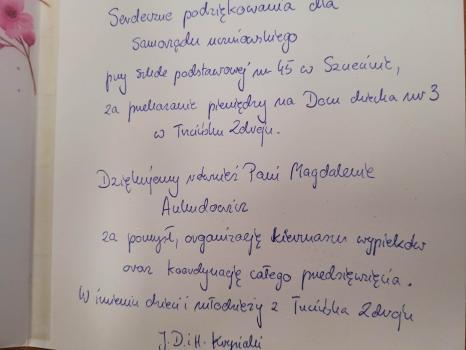 Serdeczne podziękowania dla
Samorządu uczniowskiego
przy szkole podstawowej nr 45 w Szczecinie,
za przekazanie pieniędzy na Dom dziecka nr 3
w Trzcińsku Zdroju.
Dziękujemy również Pani Magdalenie
za pomysł, organizację kiermaszu wypieków
oraz koordynację całego przedsięwzięcia.
W imieniu dzieci i młodzieży z Trzcińska Zdroju
J.D. i H.